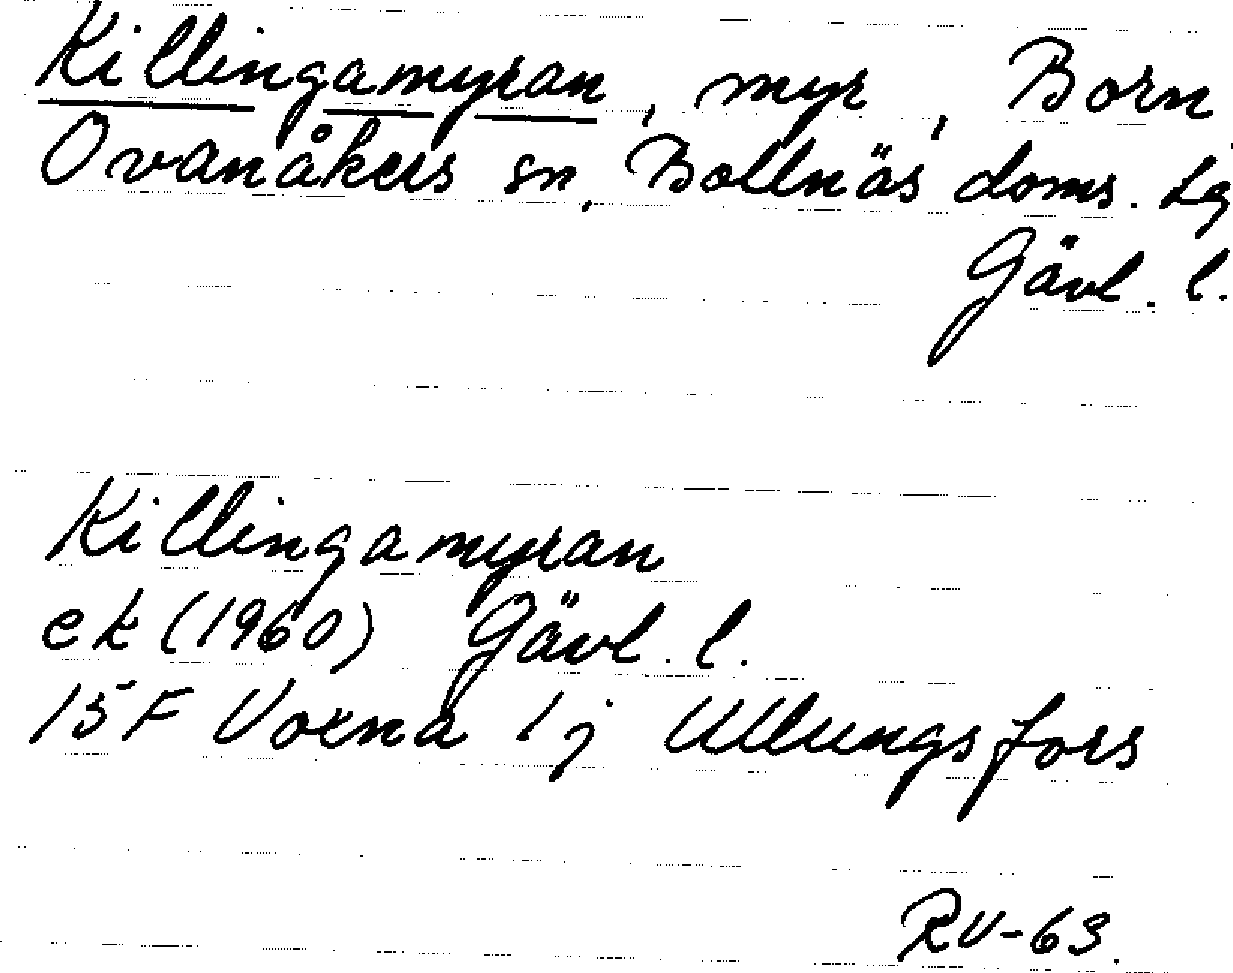 Killingamyran, myr, Born
Ovanåkers sn, Bollnäs doms. lg
Gävl. l.
Killingamyran
ek (1960) Gävl. l.
15F Voxna 1j Ullungsfors
RV-63.